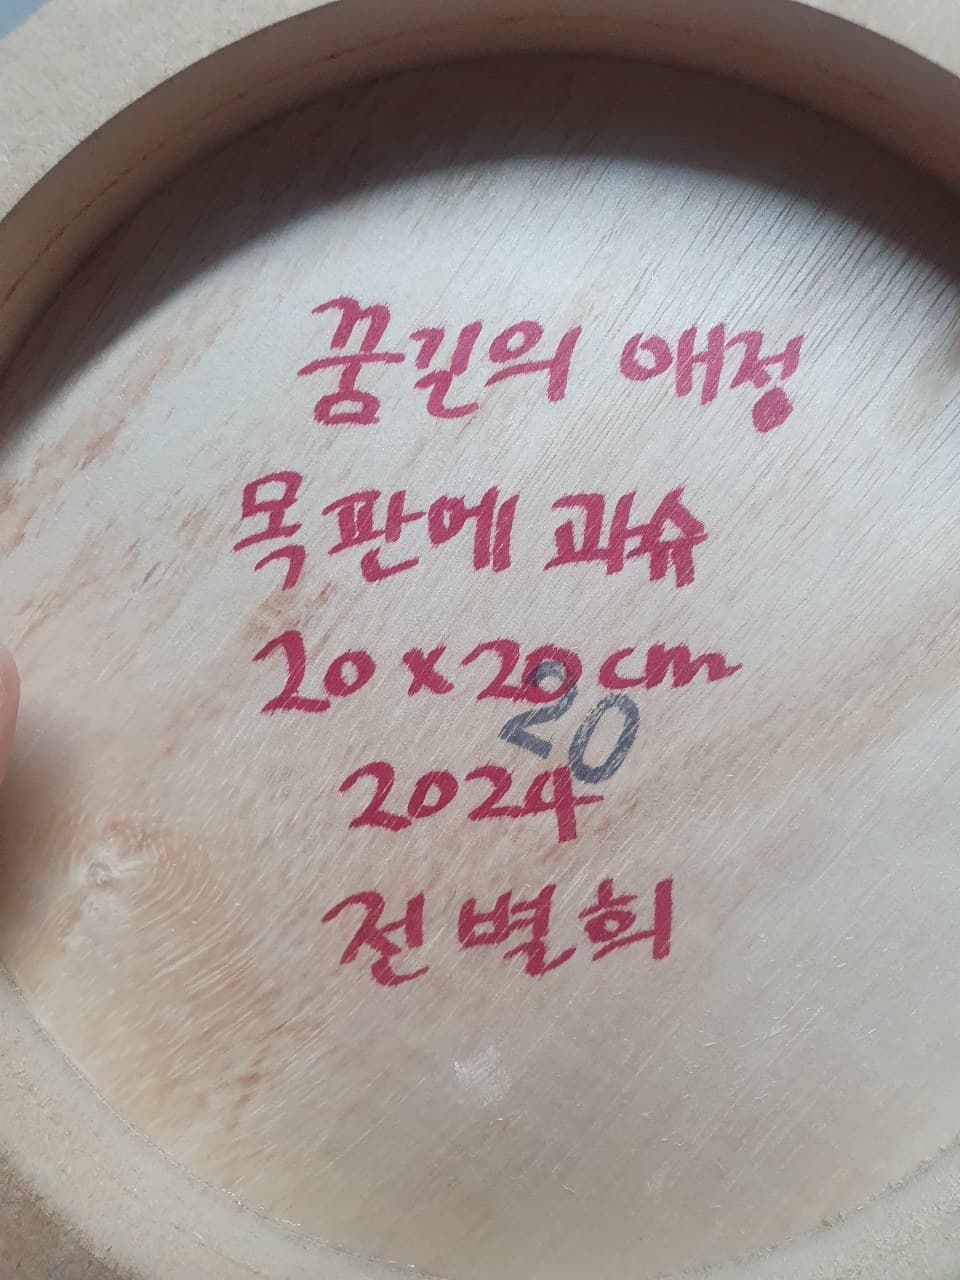 꿍길의 애정
목판에 과슈
20 x 20 cm
20
2024
전별희